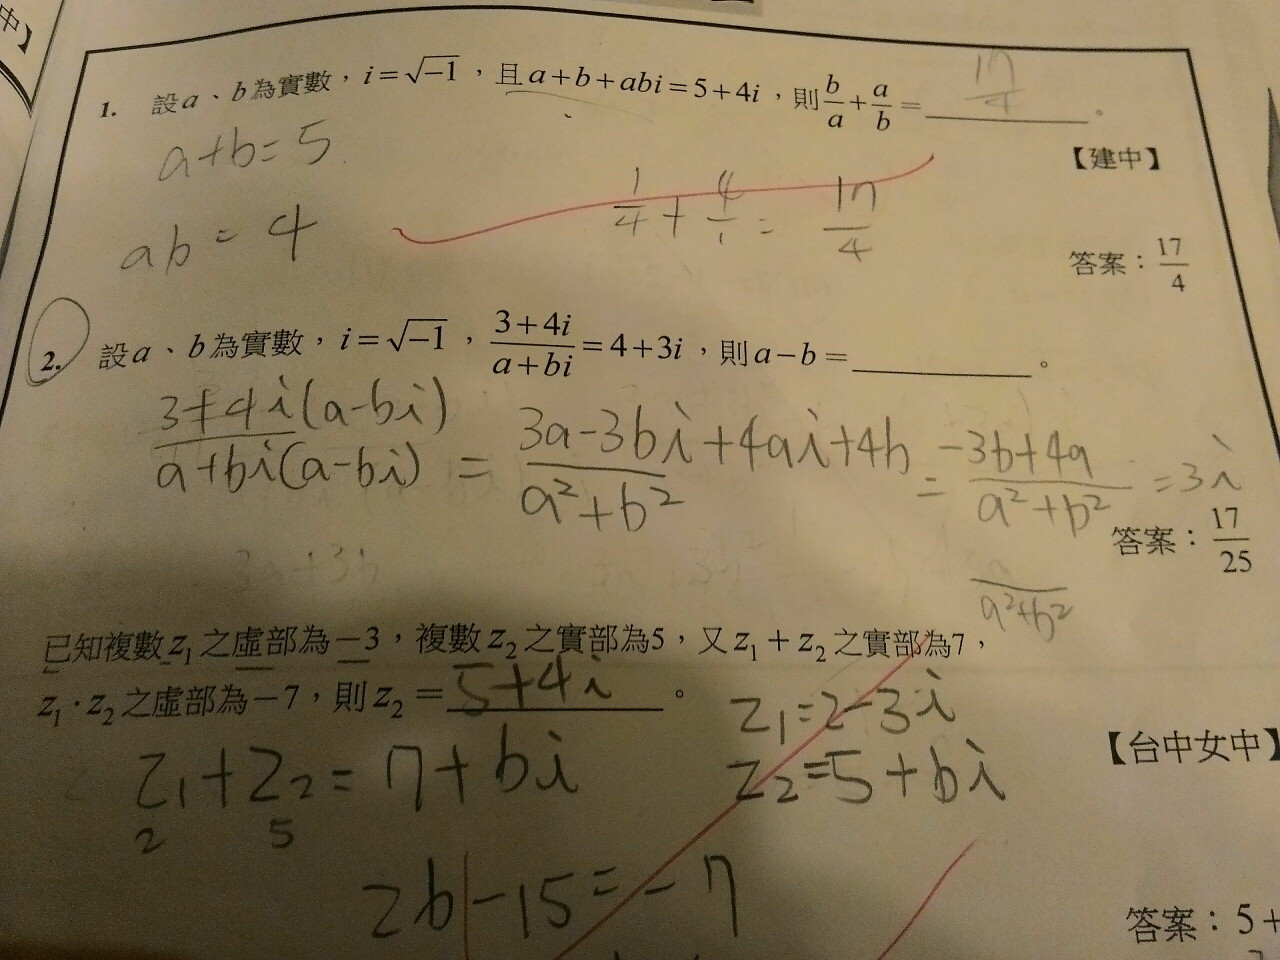 中】
1. 設a、b為實數，i=√-1，且a+b+abi=5+4i，則b/a+a/b=17/4。
a+b=5
【建中】
1/4+4/1=17/4
ab=4
答案：17/4
2. 設a、b為實數，i=√-1，(3+4i)/(a+bi)=4+3i，則a-b=______。
3+4i(a-bi)/a+bi(a-bi)=3a-3bi+4ai+4b/a²+b²=-3b+4a/a²+b²=3i
答案：17/25
a²+b²
已知複數z₁之虛部為-3，複數z₂之實部為5，又z₁+z₂之實部為7，
z₁·z₂之虛部為-7，則z₂=5+4i。
z₁=2-3i
【台中女中】
z₁+z₂=7+bi
z₂=5+bi
2 5
2b-15=-7
答案：5+